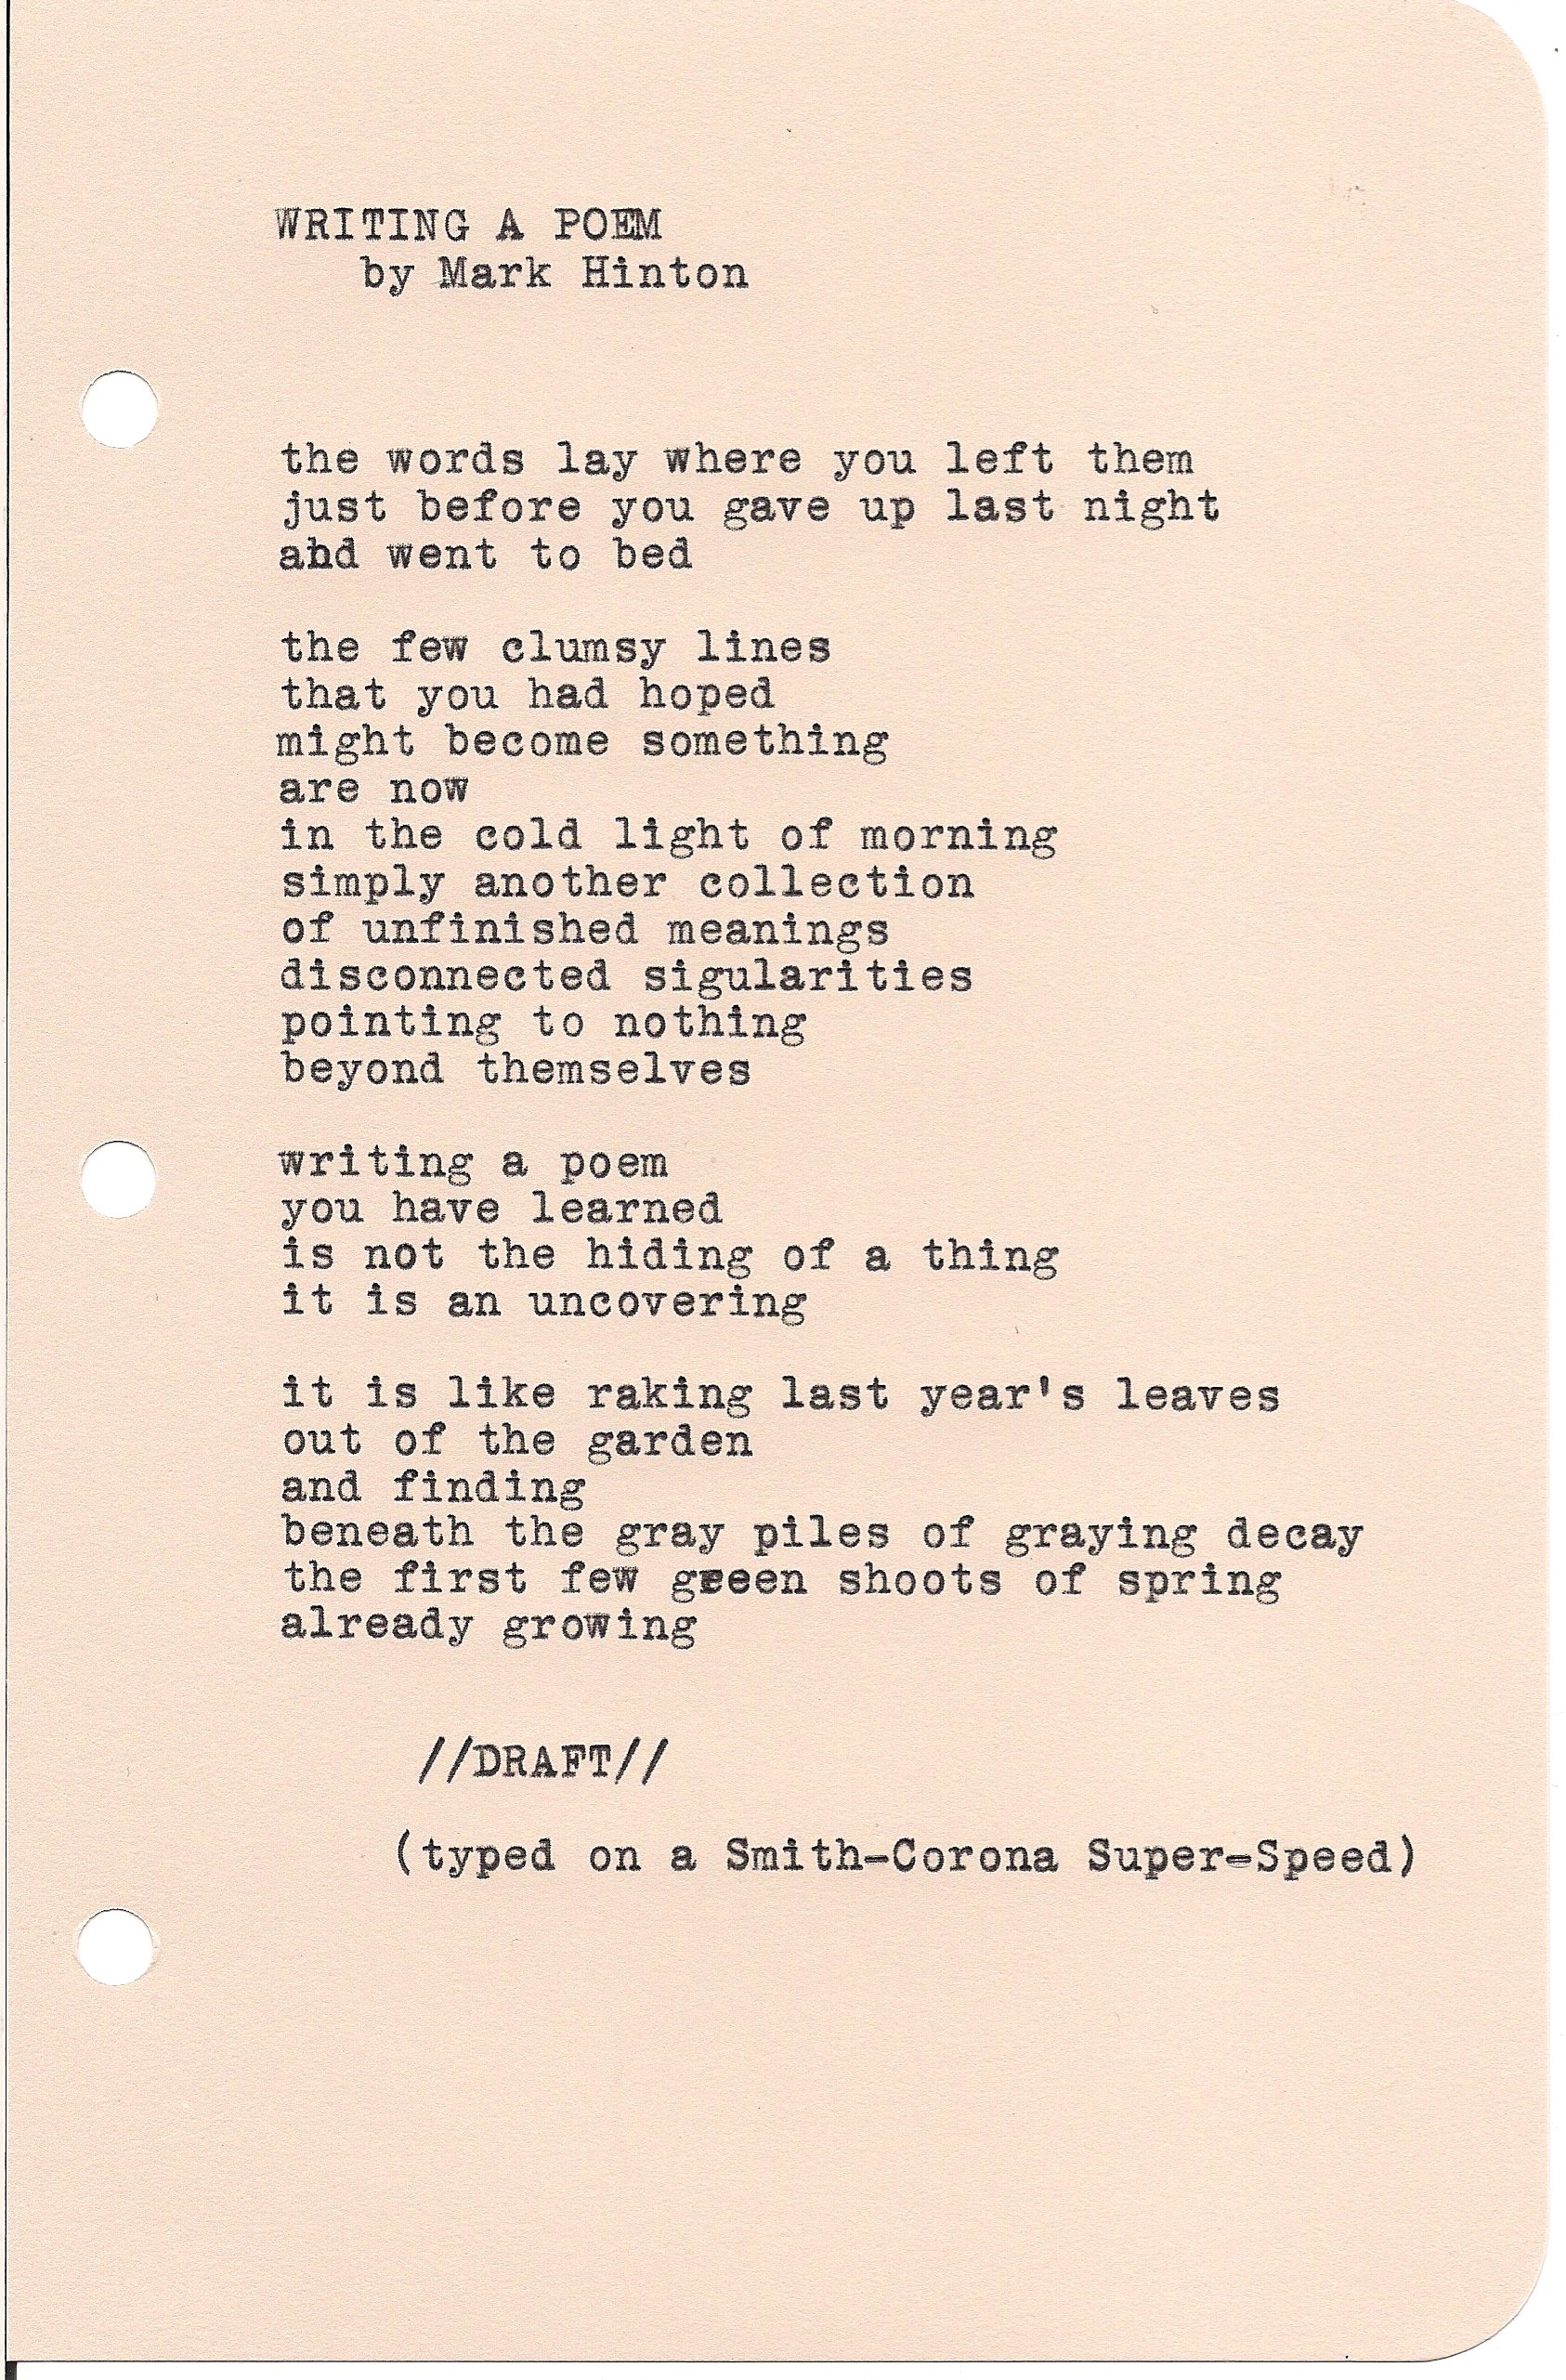 WRITING A POEM
by Mark Hinton
the words lay where you left them
just before you gave up last night
and went to bed
the few clumsy lines
that you had hoped
might become something
are now
in the cold light of morning
simply another collection
of unfinished meanings
disconnected sigularities
pointing to nothing
beyond themselves
writing a poem
you have learned
is not the hiding of a thing
it is an uncovering
it is like raking last year's leaves
out of the garden
and finding
beneath the gray piles of graying decay
the first few green shoots of spring
already growing
//DRAFT//
(typed on a Smith-Corona Super-Speed)